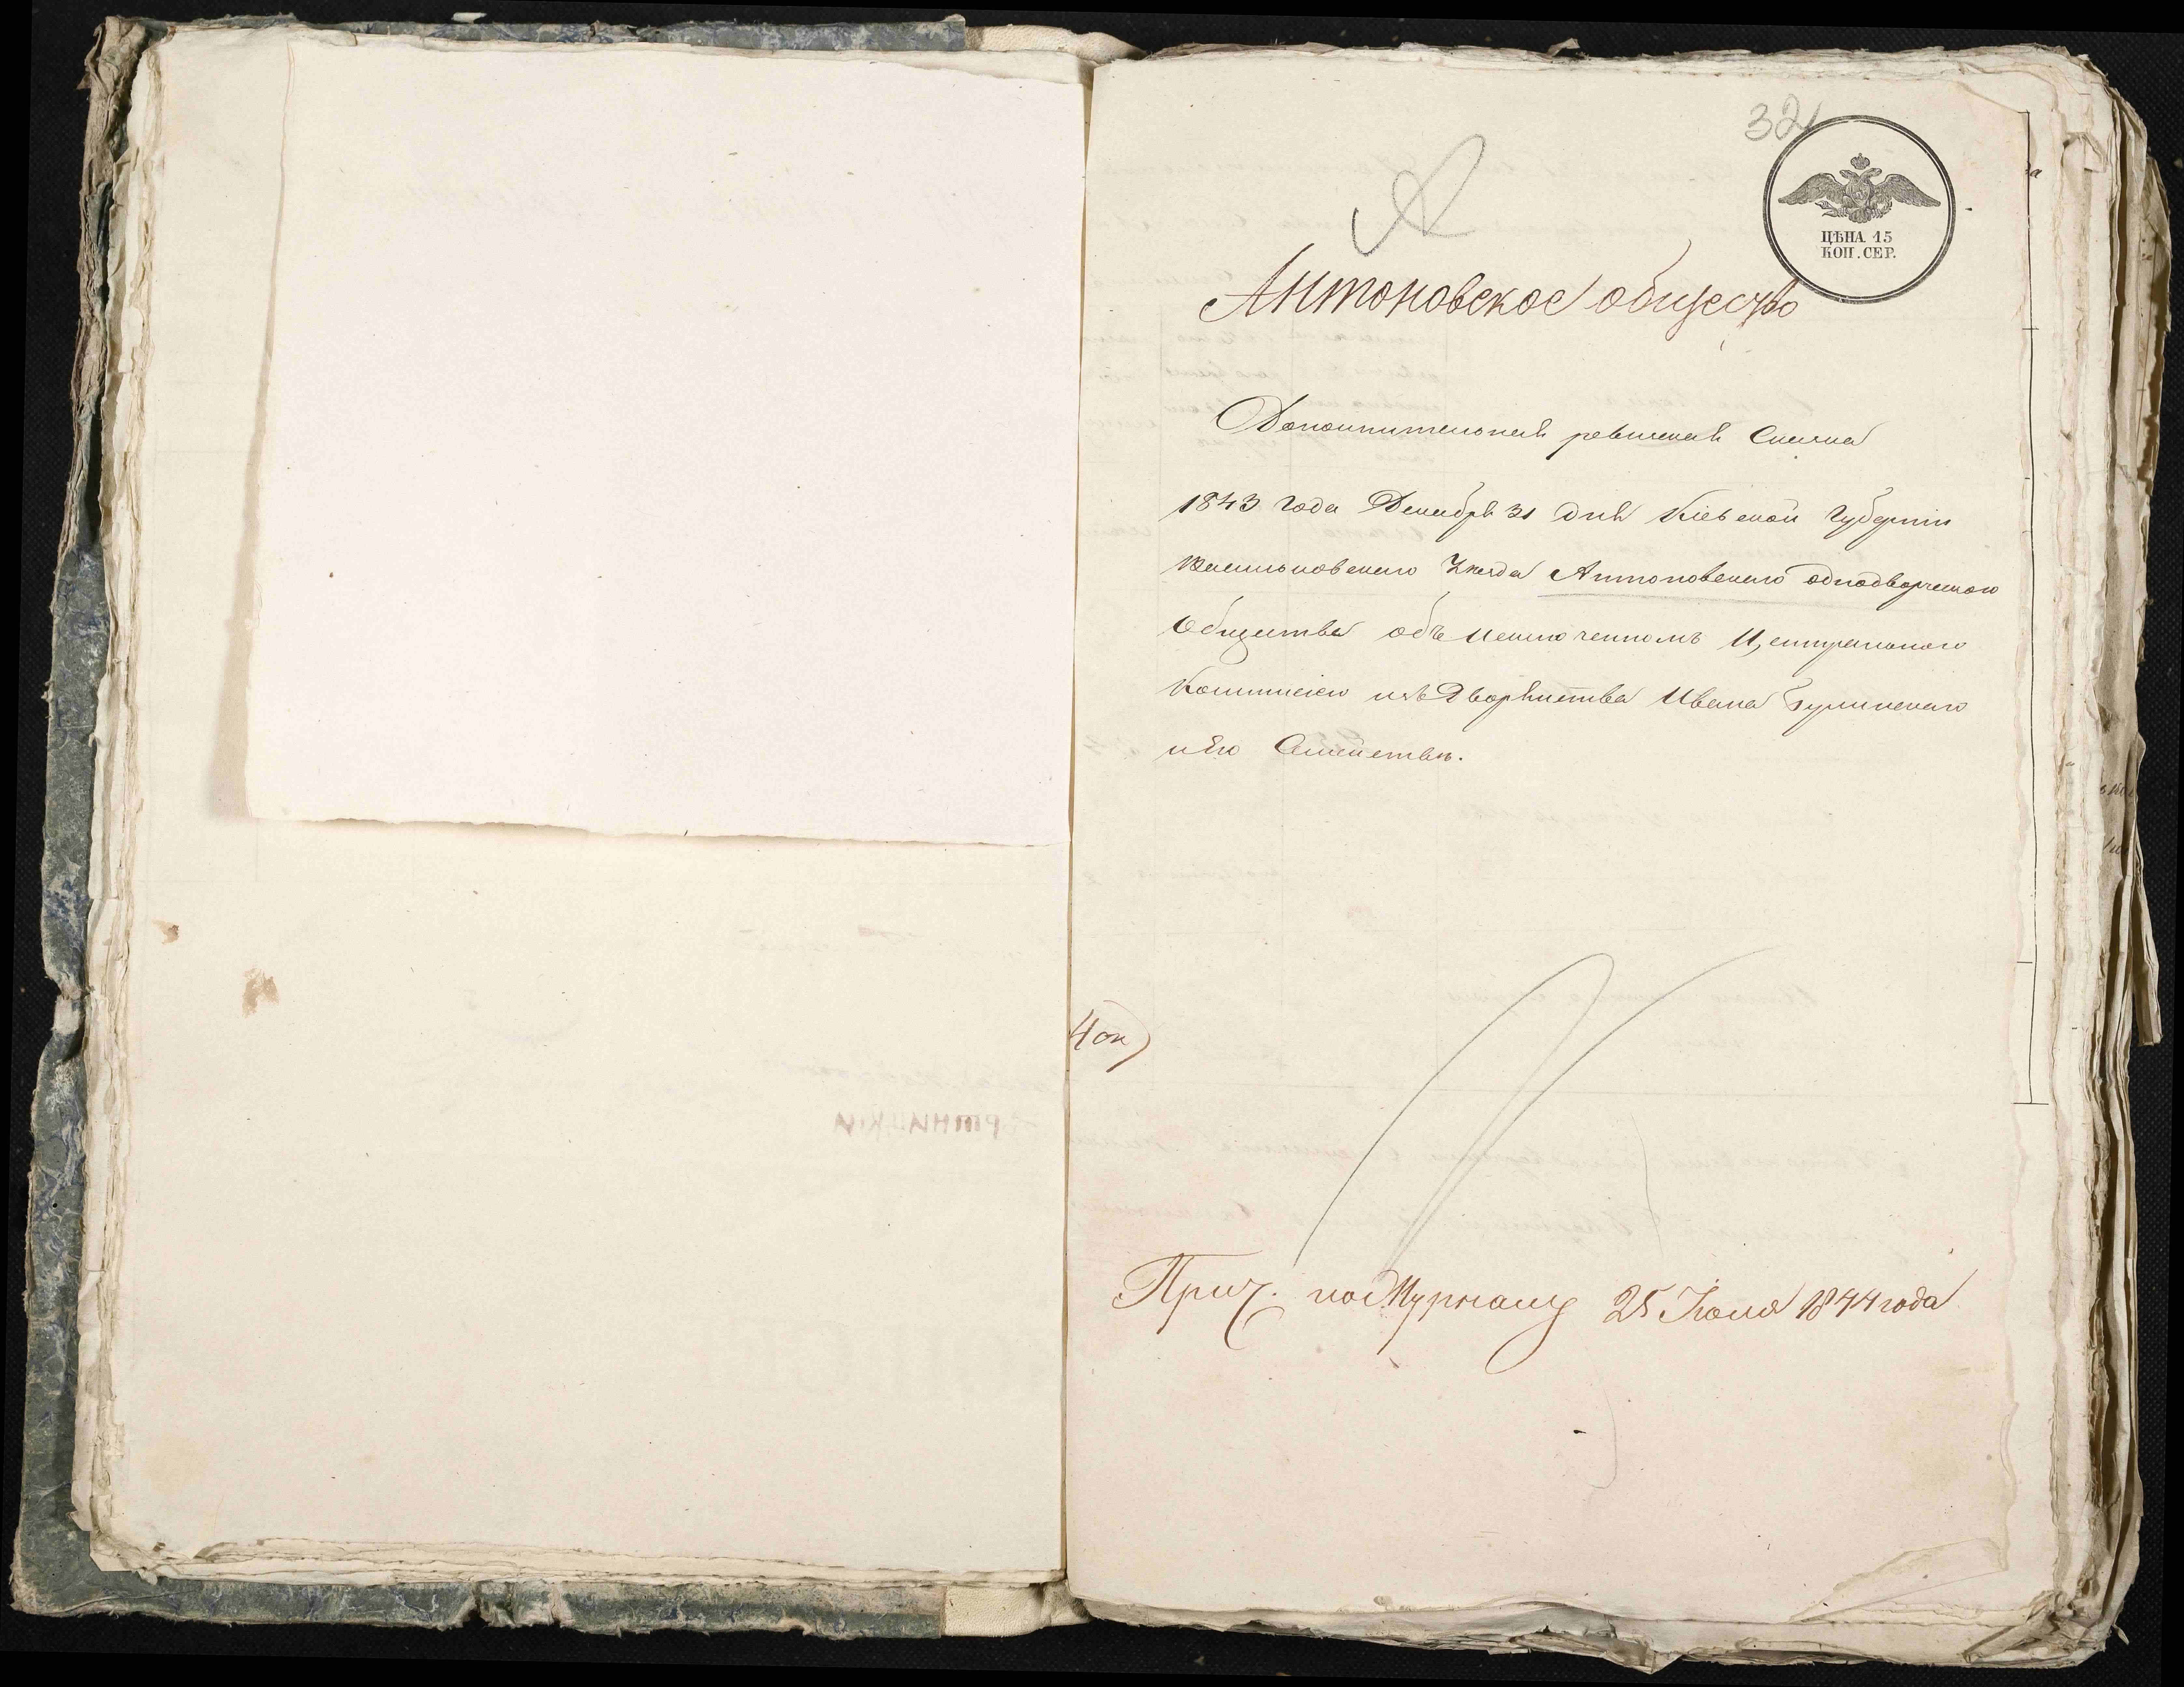 32
ЦѢНА 15
КОП. СЕР.
Антоновское общество
Дополнительная ревизская Сказка
1843 года Декабря 31 дня Кіевской Губерніи
Васильковского Уезда Антоновского однодворческого
Общества объ исключенномъ Центрального
Коммисіею изъ Дворянства Ивана
и его Семействѣ.
Прич. по Журналу 25 Іюля 1844 года